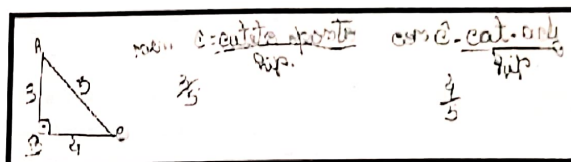 A
3
5
B
4
C
sen Ĉ = cateto oposto
hip.
3/5
cos Ĉ = cat. adj
hip
4
5